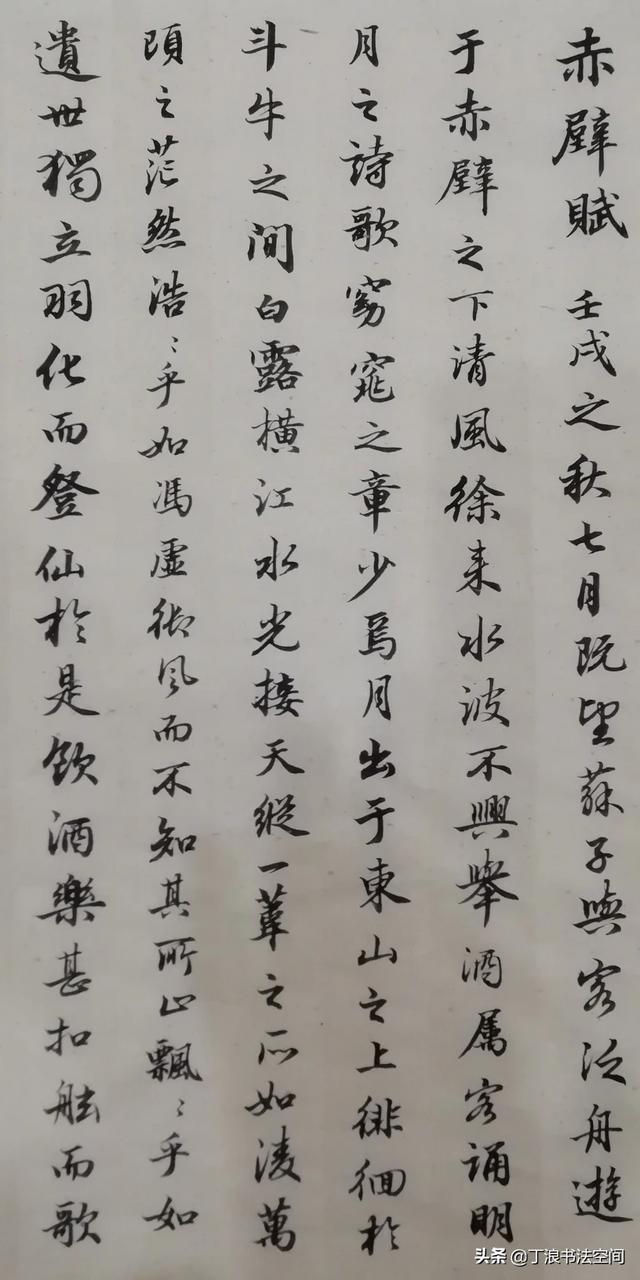 赤壁賦 壬戌之秋七月既望蘇子與客泛舟遊
于赤壁之下清風徐来水波不興舉酒属客誦明
月之詩歌窈窕之章少焉月出于東山之上徘徊於
斗牛之間白露橫江水光接天縱一葦之所如淩萬
頃之茫然浩〻乎如馮虛御风而不知其所止飄〻乎如
遺世獨立羽化而登仙於是飲酒樂甚扣舷而歌
头条 @丁浪书法空间